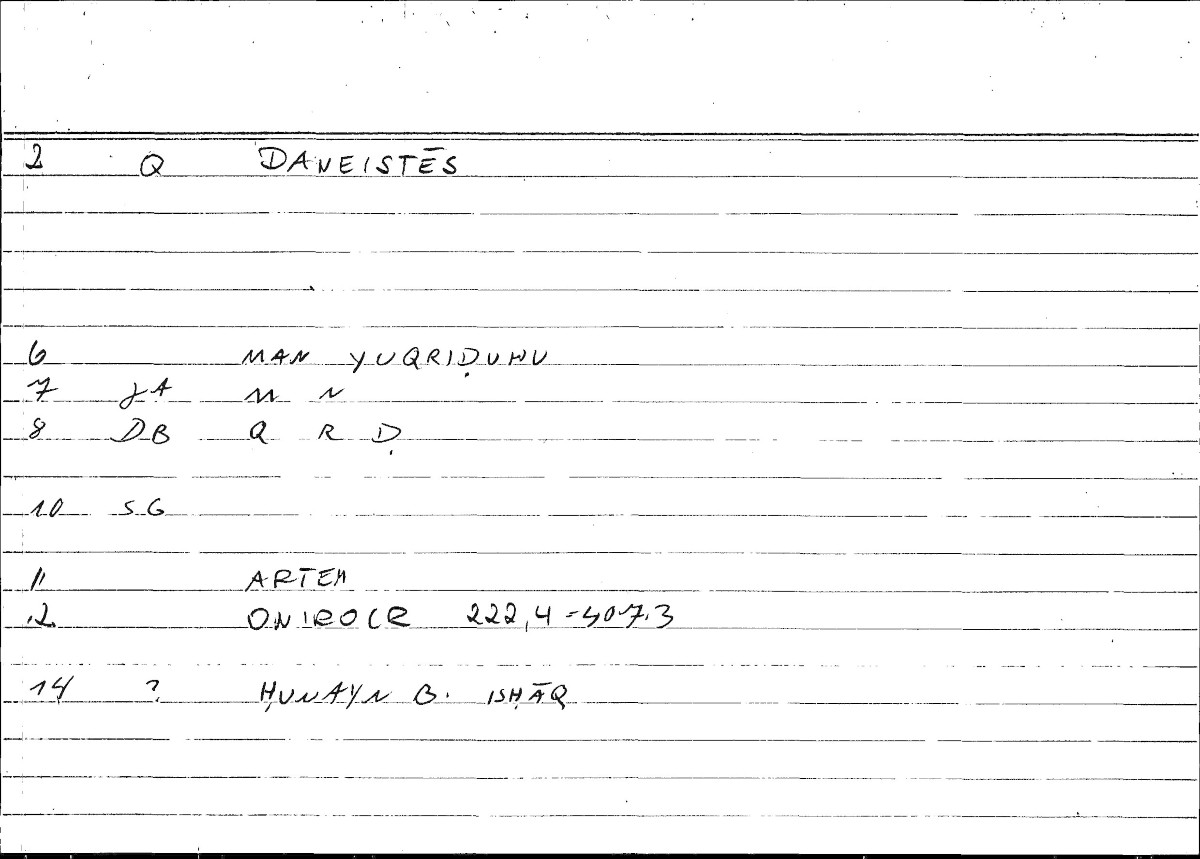 2 Q DANEISTĒS
6 MAN YUQRIḌUHU
7 JA M N
8 DB Q R Ḍ
10 SG
11 ARTEM
12 ONIROCR 222,4 = 407.3
14 ? ḤUNAYN B. ISḤĀQ